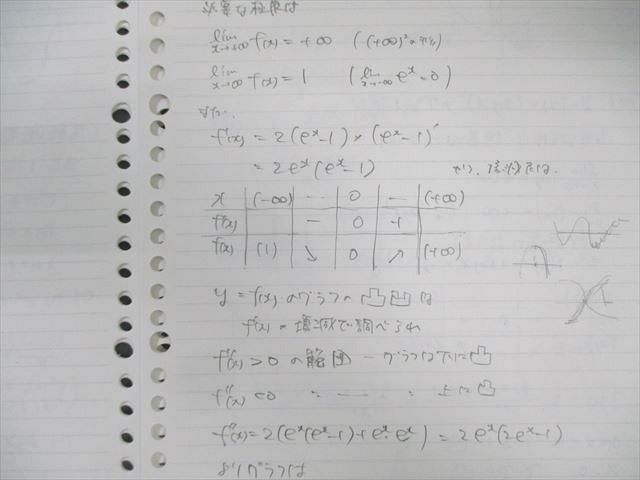 必要な極限は
lim x→+∞ f(x) = +∞ ((+∞)²の形)
lim x→-∞ f(x) = 1 (lim x→-∞ eˣ = 0)
また、
f'(x) = 2(eˣ-1)×(eˣ-1)'
= 2eˣ(eˣ-1) より、増減表は、
x (-∞) … 0 … (+∞)
f'(x) - 0 +
f(x) (1) ↘ 0 ↗ (+∞)
y = f(x)のグラフの凸凹は
f'(x)の増減で調べられ
f''(x) > 0 の範囲 ー グラフは下に凸
f''(x) < 0 〃 ー 〃 上に凸
f''(x) = 2(eˣ(eˣ-1)+eˣ・eˣ) = 2eˣ(2eˣ-1)
よりグラフは